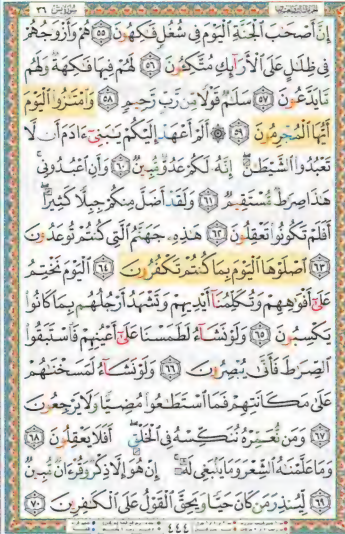 إِنَّ أَصْحَٰبَ ٱلْجَنَّةِ ٱلْيَوْمَ فِى شُغُلٍ فَٰكِهُونَ ٥٥ هُمْ وَأَزْوَٰجُهُمْ
فِى ظِلَٰلٍ عَلَى ٱلْأَرَآئِكِ مُتَّكِـُٔونَ ٥٦ لَهُمْ فِيهَا فَٰكِهَةٌ وَلَهُم
مَّا يَدَّعُونَ ٥٧ سَلَٰمٌ قَوْلًا مِّن رَّبٍّ رَّحِيمٍ ٥٨ وَٱمْتَٰزُوا۟ ٱلْيَوْمَ
أَيُّهَا ٱلْمُجْرِمُونَ ٥٩ ۞ أَلَمْ أَعْهَدْ إِلَيْكُمْ يَٰبَنِىٓ ءَادَمَ أَن لَّا
تَعْبُدُوا۟ ٱلشَّيْطَٰنَ ۖ إِنَّهُۥ لَكُمْ عَدُوٌّ مُّبِينٌ ٦٠ وَأَنِ ٱعْبُدُونِى ۚ
هَٰذَا صِرَٰطٌ مُّسْتَقِيمٌ ٦١ وَلَقَدْ أَضَلَّ مِنكُمْ جِبِلًّا كَثِيرًا ۖ
أَفَلَمْ تَكُونُوا۟ تَعْقِلُونَ ٦٢ هَٰذِهِۦ جَهَنَّمُ ٱلَّتِى كُنتُمْ تُوعَدُونَ
٦٣ ٱصْلَوْهَا ٱلْيَوْمَ بِمَا كُنتُمْ تَكْفُرُونَ ٦٤ ٱلْيَوْمَ نَخْتِمُ
عَلَىٰٓ أَفْوَٰهِهِمْ وَتُكَلِّمُنَآ أَيْدِيهِمْ وَتَشْهَدُ أَرْجُلُهُم بِمَا كَانُوا۟
يَكْسِبُونَ ٦٥ وَلَوْ نَشَآءُ لَطَمَسْنَا عَلَىٰٓ أَعْيُنِهِمْ فَٱسْتَبَقُوا۟
ٱلصِّرَٰطَ فَأَنَّىٰ يُبْصِرُونَ ٦٦ وَلَوْ نَشَآءُ لَمَسَخْنَٰهُمْ
عَلَىٰ مَكَانَتِهِمْ فَمَا ٱسْتَطَٰعُوا۟ مُضِيًّا وَلَا يَرْجِعُونَ
٦٧ وَمَن نُّعَمِّرْهُ نُنَكِّسْهُ فِى ٱلْخَلْقِ ۖ أَفَلَا يَعْقِلُونَ ٦٨
وَمَا عَلَّمْنَٰهُ ٱلشِّعْرَ وَمَا يَنۢبَغِى لَهُۥٓ ۚ إِنْ هُوَ إِلَّا ذِكْرٌ وَقُرْءَانٌ مُّبِينٌ
٦٩ لِّيُنذِرَ مَن كَانَ حَيًّا وَيَحِقَّ ٱلْقَوْلُ عَلَى ٱلْكَٰفِرِينَ ٧٠
٤٤٤